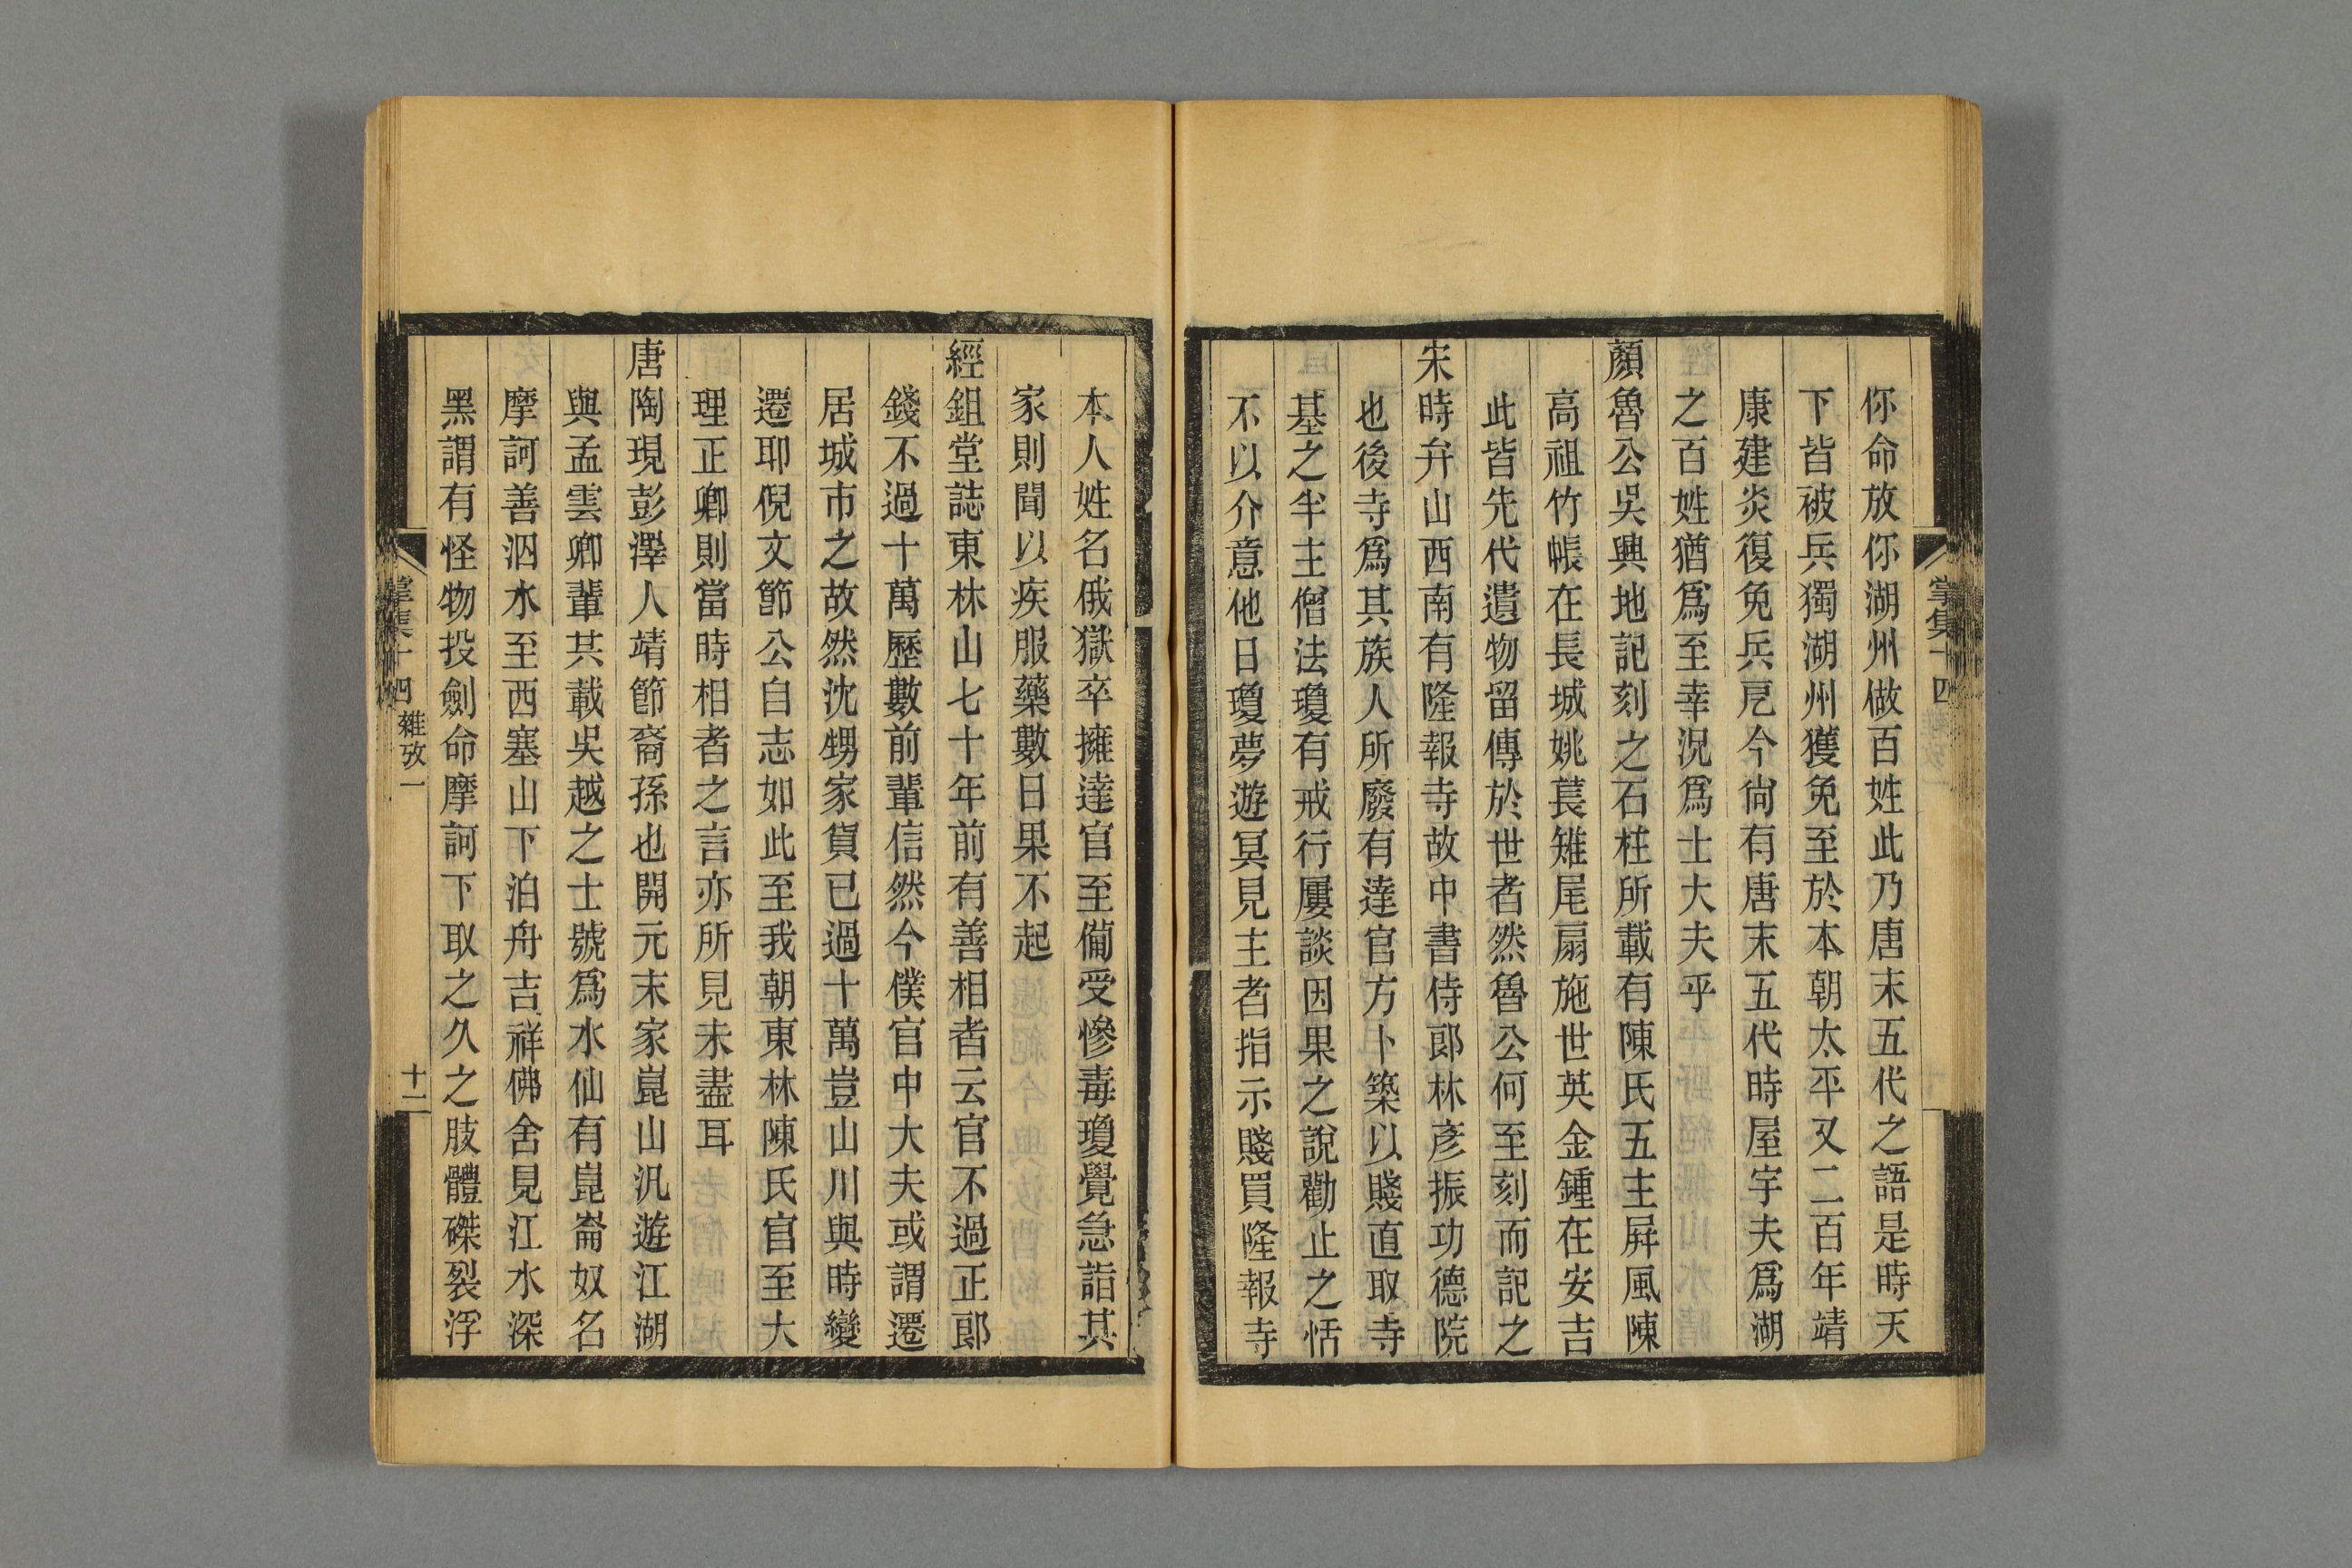 你命放你湖州做百姓此乃唐末五代之語是時天
下皆被兵獨湖州獲免至於本朝太平又二百年靖
康建炎復免兵戹今尙有唐末五代時屋宇夫爲湖
之百姓猶爲至幸況爲士大夫乎
顏魯公吳興地記刻之石柱所載有陳氏五主屛風陳
高祖竹帳在長城姚萇雉尾扇施世英金鍾在安吉
此皆先代遺物留傳於世者然魯公何至刻而記之
宋時弁山西南有隆報寺故中書侍郞林彥振功德院
也後寺爲其族人所廢有達官方卜築以賤直取寺
基之半主僧法瓊有戒行屢談因果之說勸止之恬
不以介意他日瓊夢遊冥見主者指示賤買隆報寺
本人姓名俄獄卒擁達官至備受慘毒瓊覺急詣其
家則聞以疾服藥數日果不起
經鉏堂誌東林山七十年前有善相者云官不過正郞
錢不過十萬歷數前輩信然今僕官中大夫或謂遷
居城市之故然沈甥家貨已過十萬豈山川與時變
遷耶倪文節公自志如此至我朝東林陳氏官至大
理正卿則當時相者之言亦所見未盡耳
唐陶現彭澤人靖節裔孫也開元末家崑山汎遊江湖
與孟雲卿輩共載吳越之士號爲水仙有崑崙奴名
摩訶善泅水至西塞山下泊舟吉祥佛舍見江水深
黑謂有怪物投劍命摩訶下取之久之肢體磔裂浮
掌集十四 雜攷一 十二